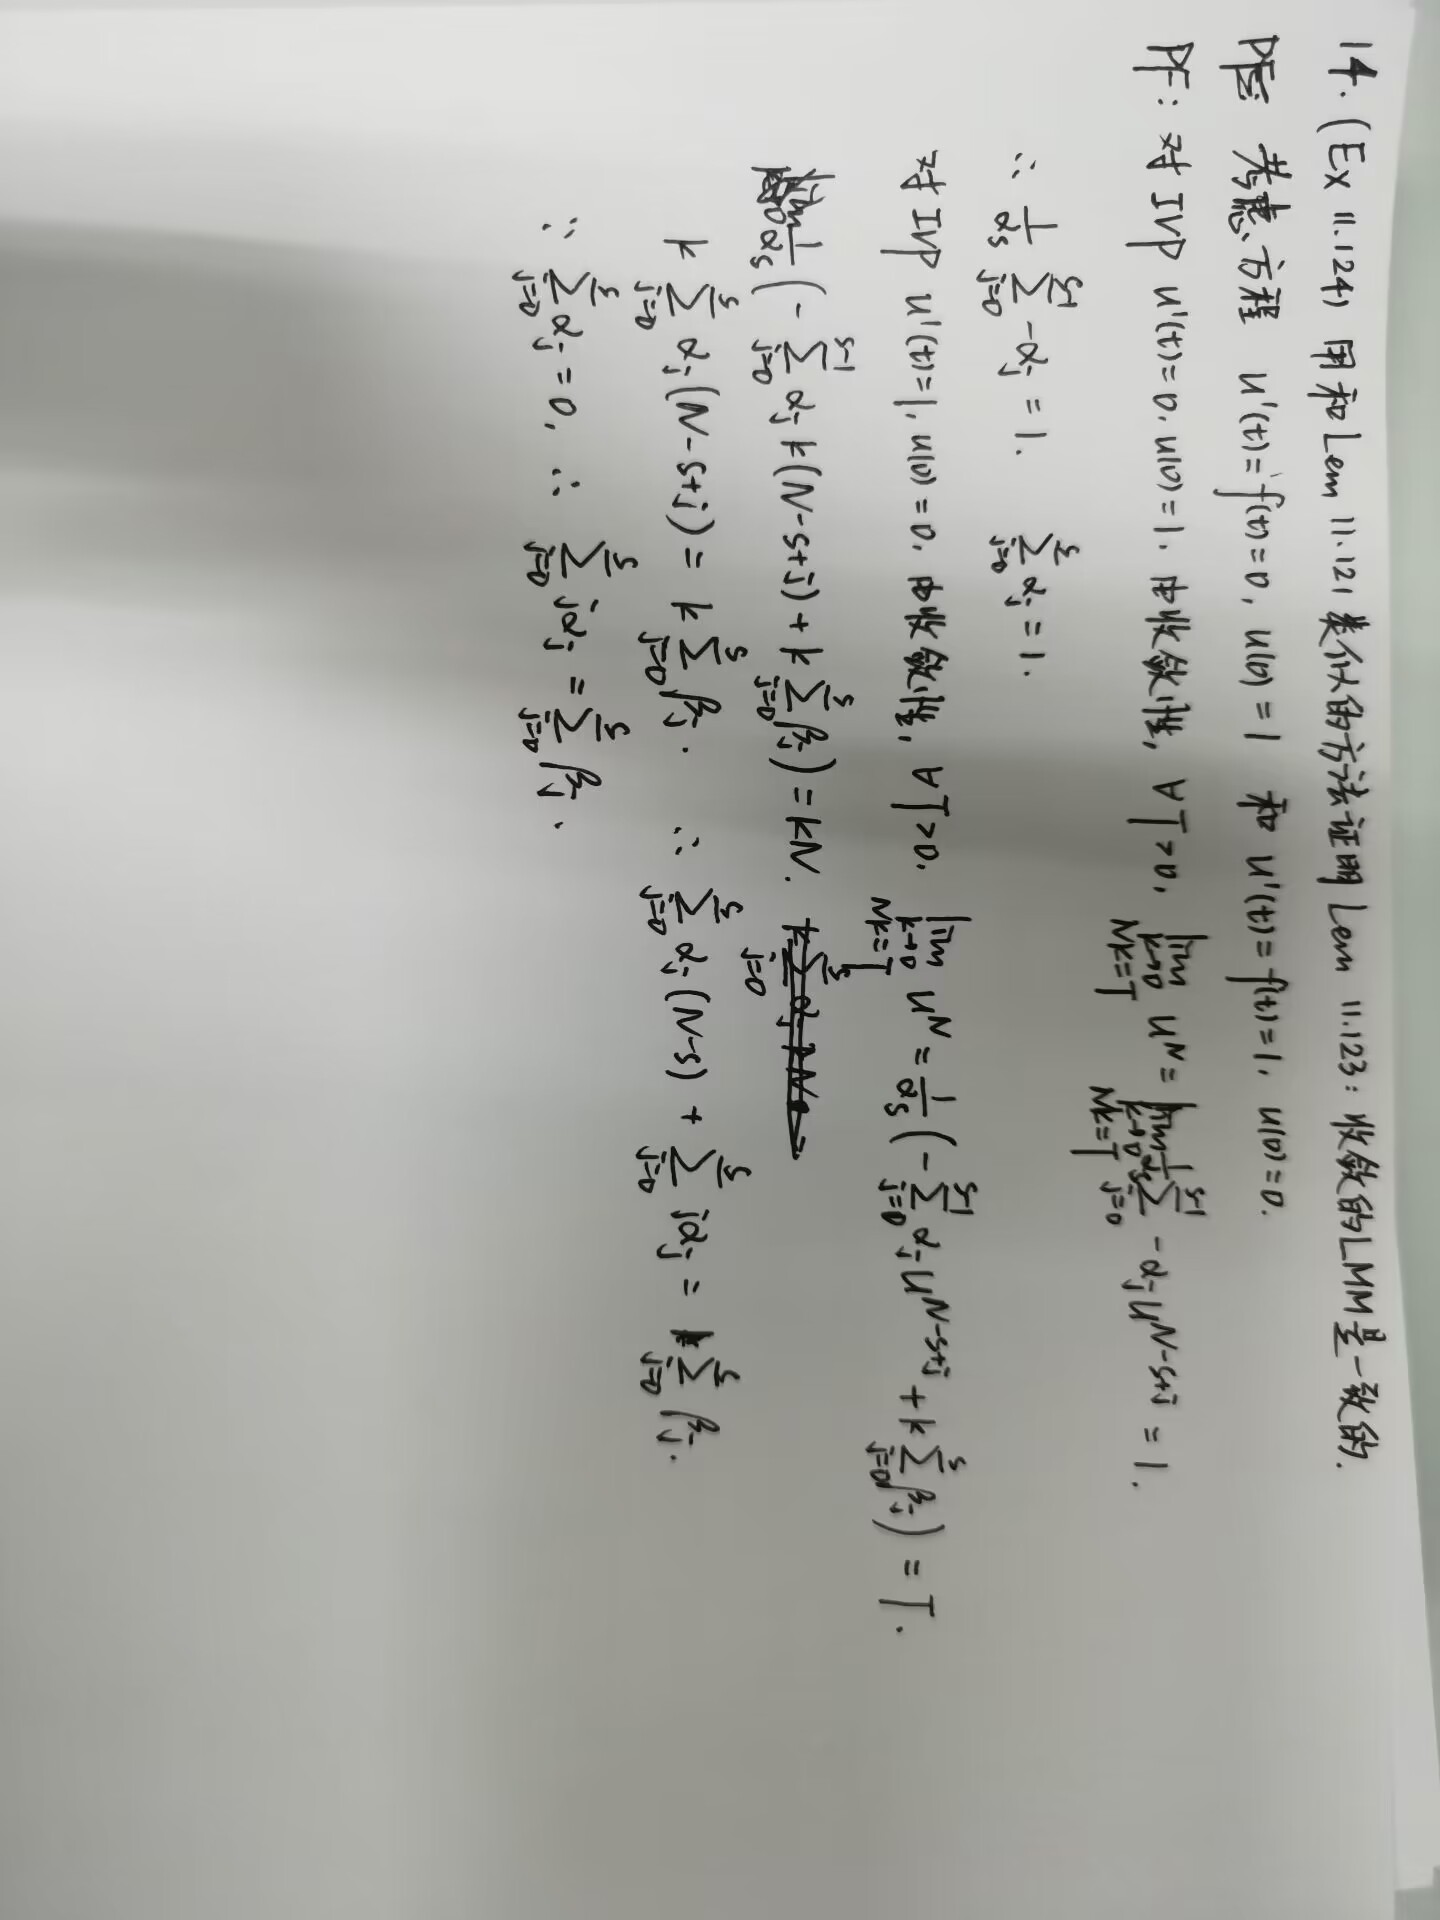 14. (Ex 11.124) 用和Lem 11.121类似的方法证明Lem 11.123: 收敛的LMM是一致的.
考虑方程 u'(t)=f(t)=0, u(0)=1 和 u'(t)=f(t)=1, u(0)=0.
PF: 对IVP u'(t)=0, u(0)=1. 由收敛性, ∀T>0, lim_{k→0, Nk=T} u^N = lim_{k→0, Nk=T} 1/α_s Σ_{j=0}^{s-1} -α_j u^{N-s+j} = 1.
∴ 1/α_s Σ_{j=0}^{s-1} -α_j = 1. Σ_{j=0}^{s} α_j = 1.
对IVP u'(t)=1, u(0)=0. 由收敛性, ∀T>0. lim_{k→0, Nk=T} u^N = 1/α_s (-Σ_{j=0}^{s-1} α_j u^{N-s+j} + k Σ_{j=0}^{s} β_j) = T.
1/α_s (-Σ_{j=0}^{s-1} α_j k(N-s+j) + k Σ_{j=0}^{s} β_j) = kN.
k Σ_{j=0}^{s} α_j (N-s+j) = k Σ_{j=0}^{s} β_j. ∴ Σ_{j=0}^{s} α_j (N-s) + Σ_{j=0}^{s} jα_j = Σ_{j=0}^{s} β_j.
∵ Σ_{j=0}^{s} α_j = 0, ∴ Σ_{j=0}^{s} jα_j = Σ_{j=0}^{s} β_j.